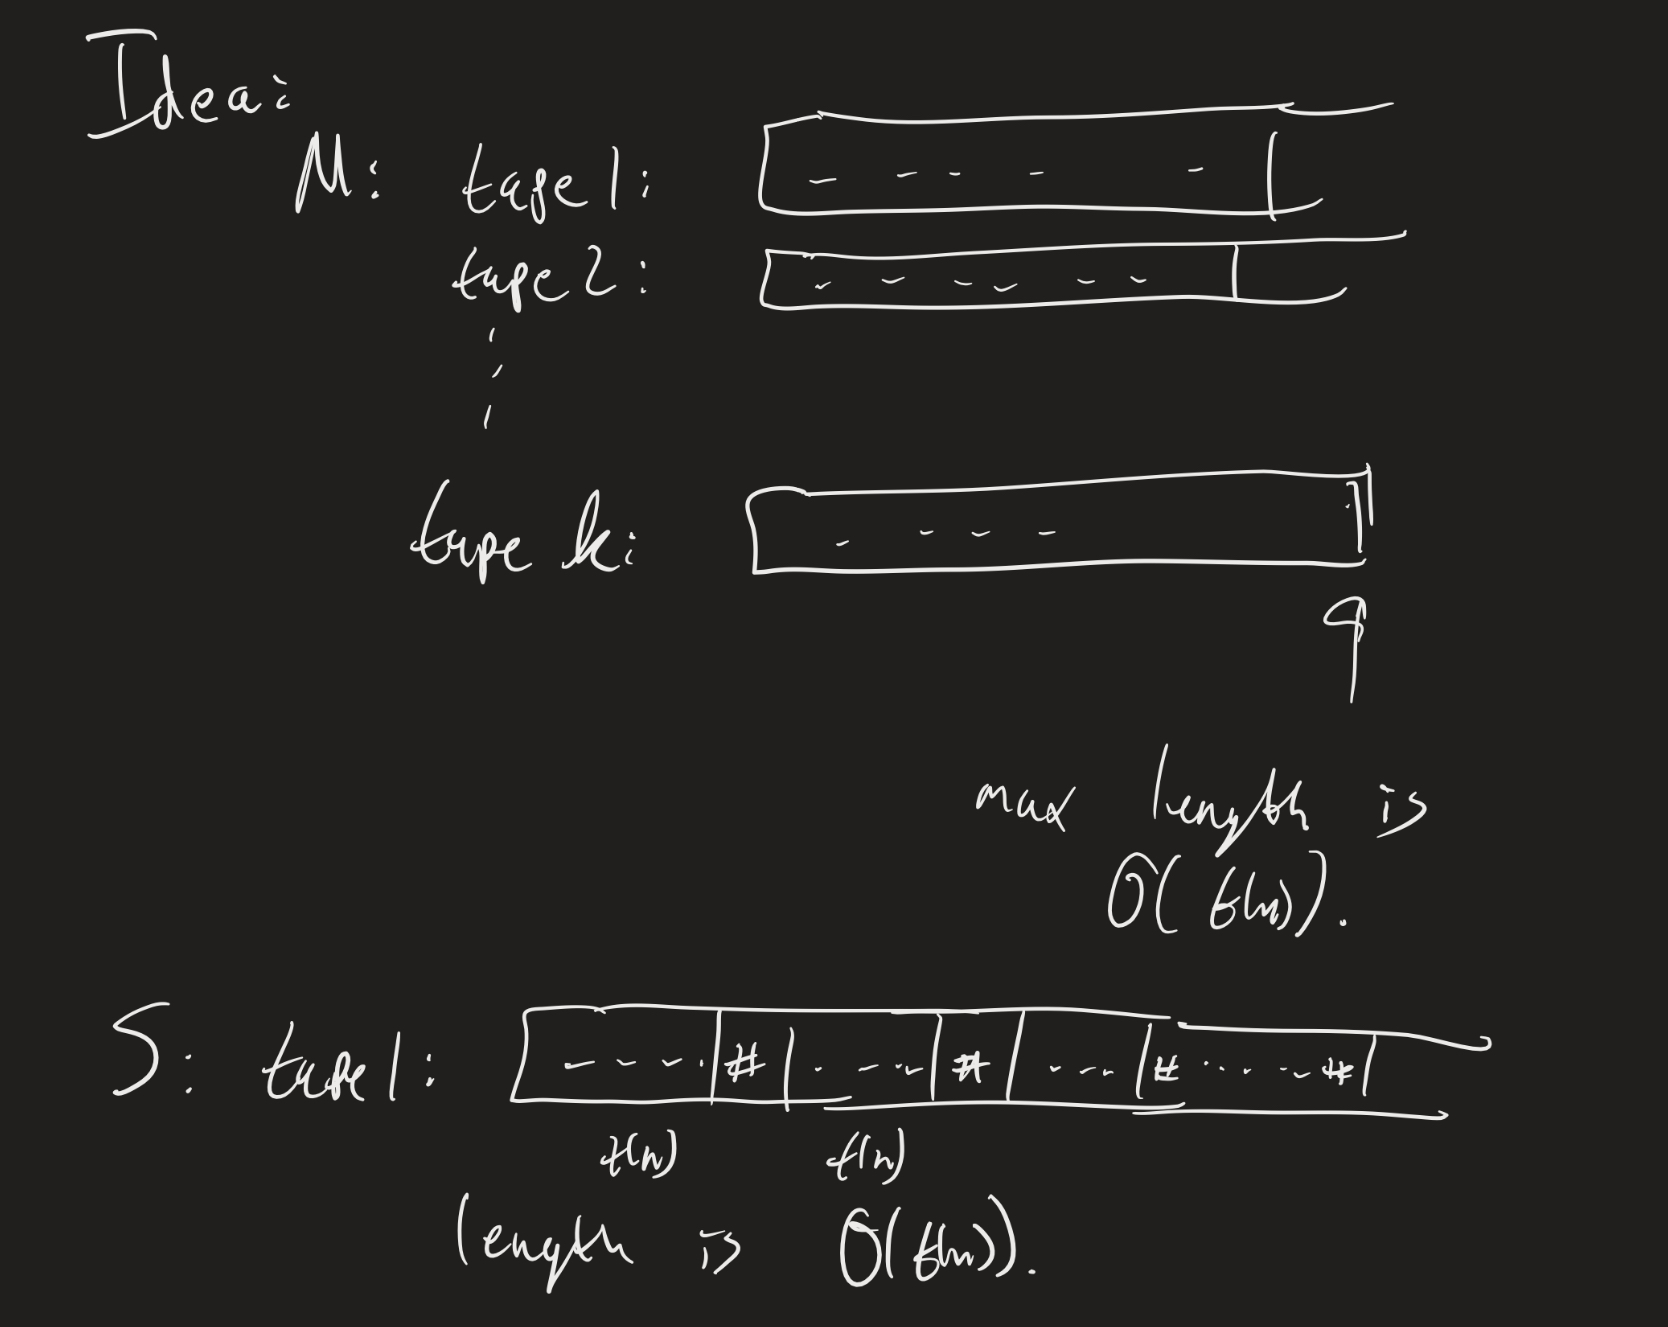 Idea:
M: tape 1:
tape 2:
tape k:
max length is
O(t(n)).
S: tape 1: # # # #
t(n) t(n)
length is O(t(n)).